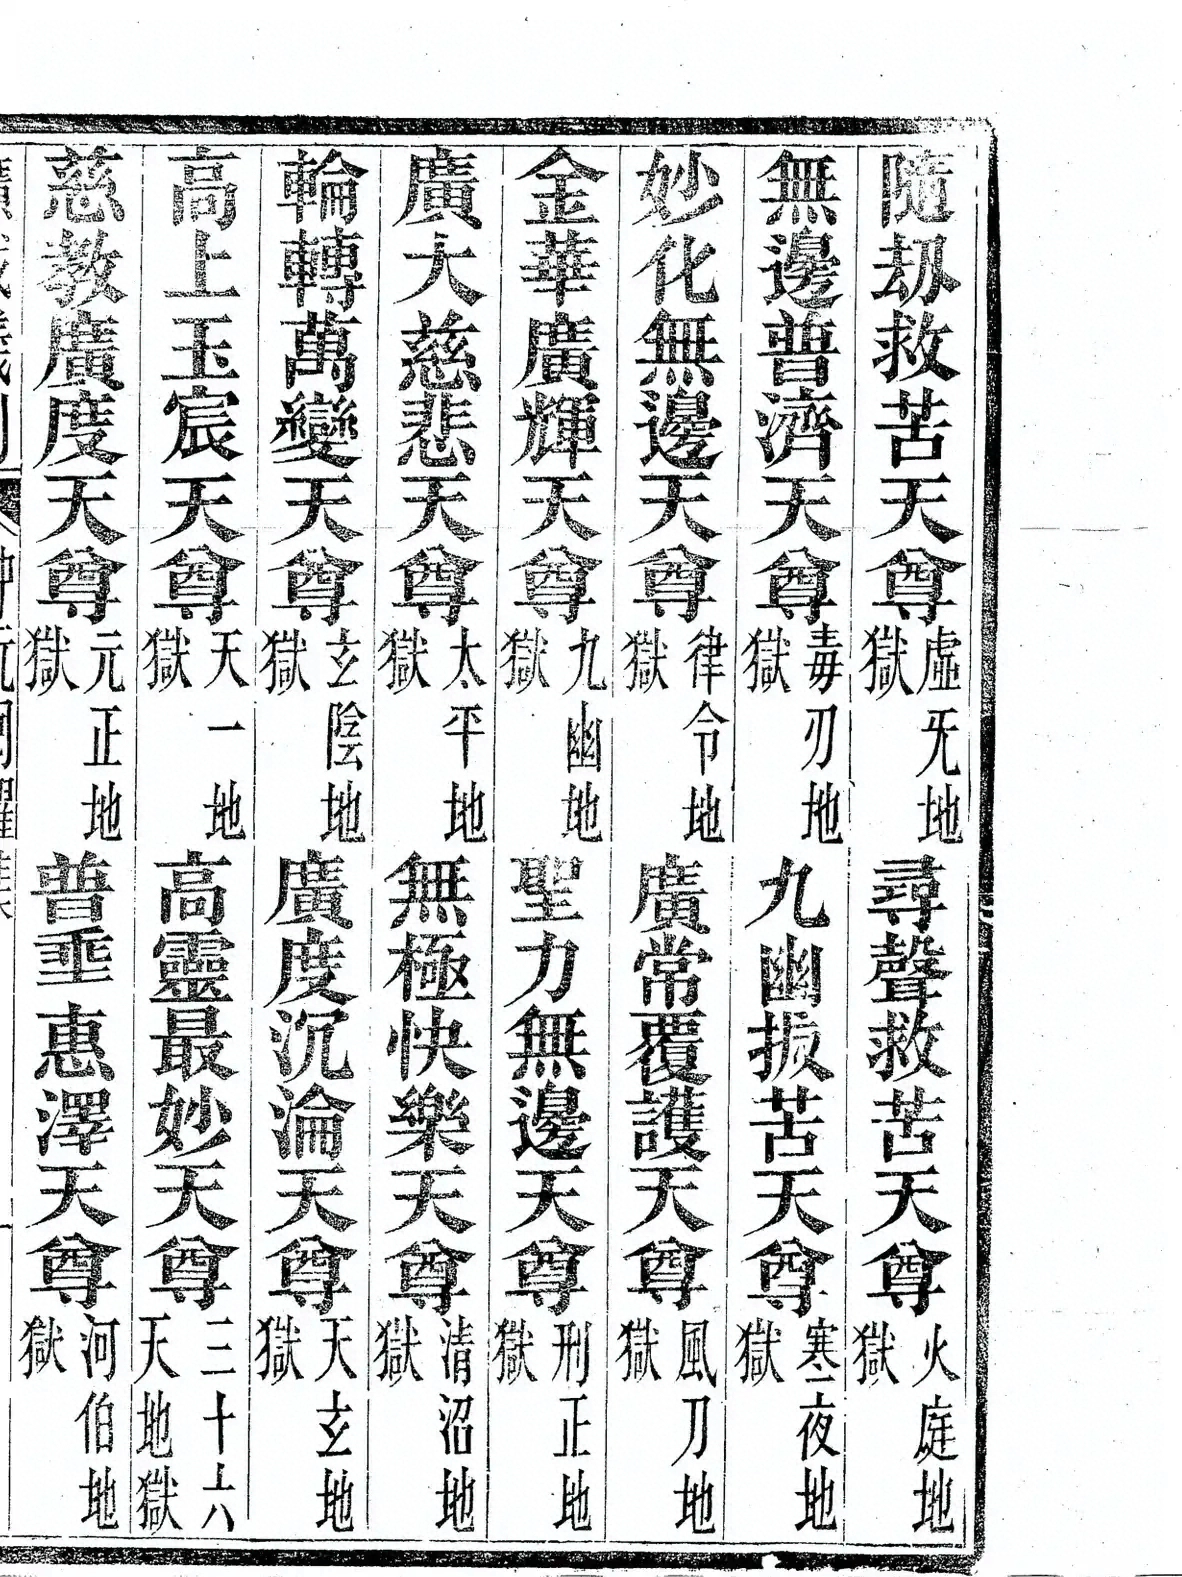 隨劫救苦天尊虛无地獄尋聲救苦天尊火庭地獄
無邊普濟天尊毒刃地獄九幽拔苦天尊寒夜地獄
妙化無邊天尊律令地獄廣常覆護天尊風刀地獄
金華廣輝天尊九幽地獄聖力無邊天尊刑正地獄
廣大慈悲天尊太平地獄無極快樂天尊清沼地獄
輪轉萬變天尊玄陰地獄廣度沉淪天尊天玄地獄
高上玉宸天尊天一地獄高靈最妙天尊三十六天地獄
慈教廣度天尊元正地獄普垂惠澤天尊河伯地獄